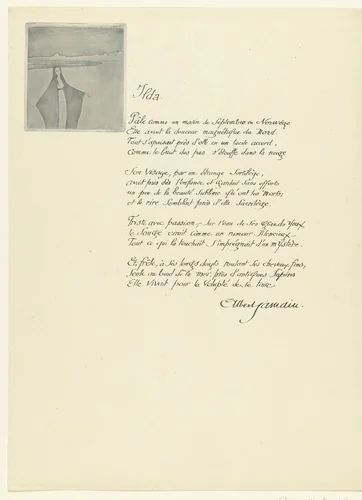 Ilda.
Pâle comme un matin de Septembre en Norvège
Elle avait la douceur magnétique du Nord.
Tout s'apaisait près d'elle en un tacite accord,
Comme le bruit des pas s'étouffe dans la neige
Son Visage, par un étrange Sortilège,
avait pris dès l'enfance et gardait sans efforts
un peu de la beauté sublime qu'ont les morts;
et le rire semblait près d'elle Sacrilège.
Triste avec passion, sur l'eau de ses grands yeux
le Songe comme un rameur Silencieux
Tout ce qui la touchait s'imprégnait d'un mystère.
Et, frêle, à ses longs doigts roulant ses cheveux fins,
Seule au bord de la mer près d'antiques Sapins
Elle vivait pour la volupté de se taire.
Albert Samain.